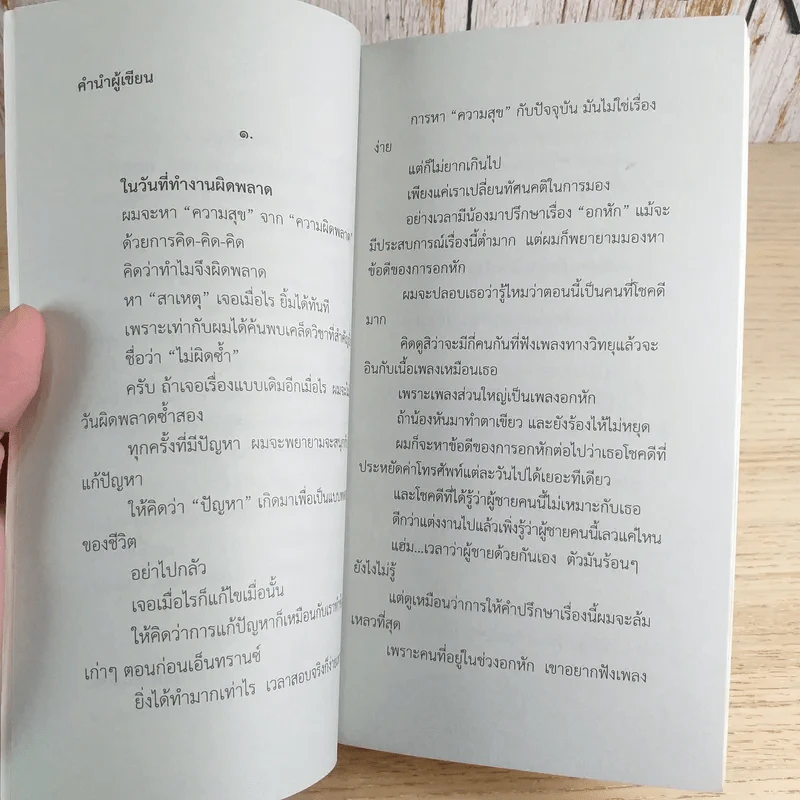 คำนำผู้เขียน
๑.
ในวันที่ทำงานผิดพลาด
ผมจะหา “ความสุข” จาก “ความผิดพลาด”
ด้วยการคิด-คิด-คิด
คิดว่าทำไมจึงผิดพลาด
หา “สาเหตุ” เจอเมื่อไร ยิ้มได้ทันที
เพราะเท่ากับผมได้ค้นพบเคล็ดวิชาที่สำคัญ
ชื่อว่า “ไม่ผิดซ้ำ”
ครับ ถ้าเจอเรื่องแบบเดิมอีกเมื่อไร
วันผิดพลาดซ้ำสอง
ทุกครั้งที่มีปัญหา ผมจะพยายามจะสนุก
แก้ปัญหา
ให้คิดว่า “ปัญหา” เกิดมาเพื่อเป็น
ของชีวิต
อย่าไปกลัว
เจอเมื่อไรก็แก้ไขเมื่อนั้น
ให้คิดว่าการแก้ปัญหาก็เหมือนกับเรา
เก่าๆ ตอนก่อนเอ็นทรานซ์
ยิ่งได้ทำมากเท่าไร เวลาสอบจริงก็
การหา “ความสุข” กับปัจจุบัน มันไม่ใช่เรื่อง
ง่าย
แต่ก็ไม่ยากเกินไป
เพียงแค่เราเปลี่ยนทัศนคติในการมอง
อย่างเวลามีน้องมาปรึกษาเรื่อง “อกหัก” แม้จะ
มีประสบการณ์เรื่องนี้ต่ำมาก แต่ผมก็พยายามมองหา
ข้อดีของการอกหัก
ผมจะปลอบเธอว่ารู้ไหมว่าตอนนี้เป็นคนที่โชคดี
มาก
คิดดูสิว่าจะมีกี่คนกันที่ฟังเพลงทางวิทยุแล้วจะ
อินกับเนื้อเพลงเหมือนเธอ
เพราะเพลงส่วนใหญ่เป็นเพลงอกหัก
ถ้าน้องหันมาทำตาเขียว และยังร้องไห้ไม่หยุด
ผมก็จะหาข้อดีของการอกหักต่อไปว่าเธอโชคดีที่
ประหยัดค่าโทรศัพท์แต่ละวันไปได้เยอะทีเดียว
และโชคดีที่ได้รู้ว่าผู้ชายคนนี้ไม่เหมาะกับเธอ
ดีกว่าแต่งงานไปแล้วเพิ่งรู้ว่าผู้ชายคนนี้เลวแค่ไหน
แฮ่ม...เวลาว่าผู้ชายด้วยกันเอง ตัวมันร้อนๆ
ยังไงไม่รู้
แต่ดูเหมือนว่าการให้คำปรึกษาเรื่องนี้ผมจะล้ม
เหลวที่สุด
เพราะคนที่อยู่ในช่วงอกหัก เขาอยากฟังเพลง